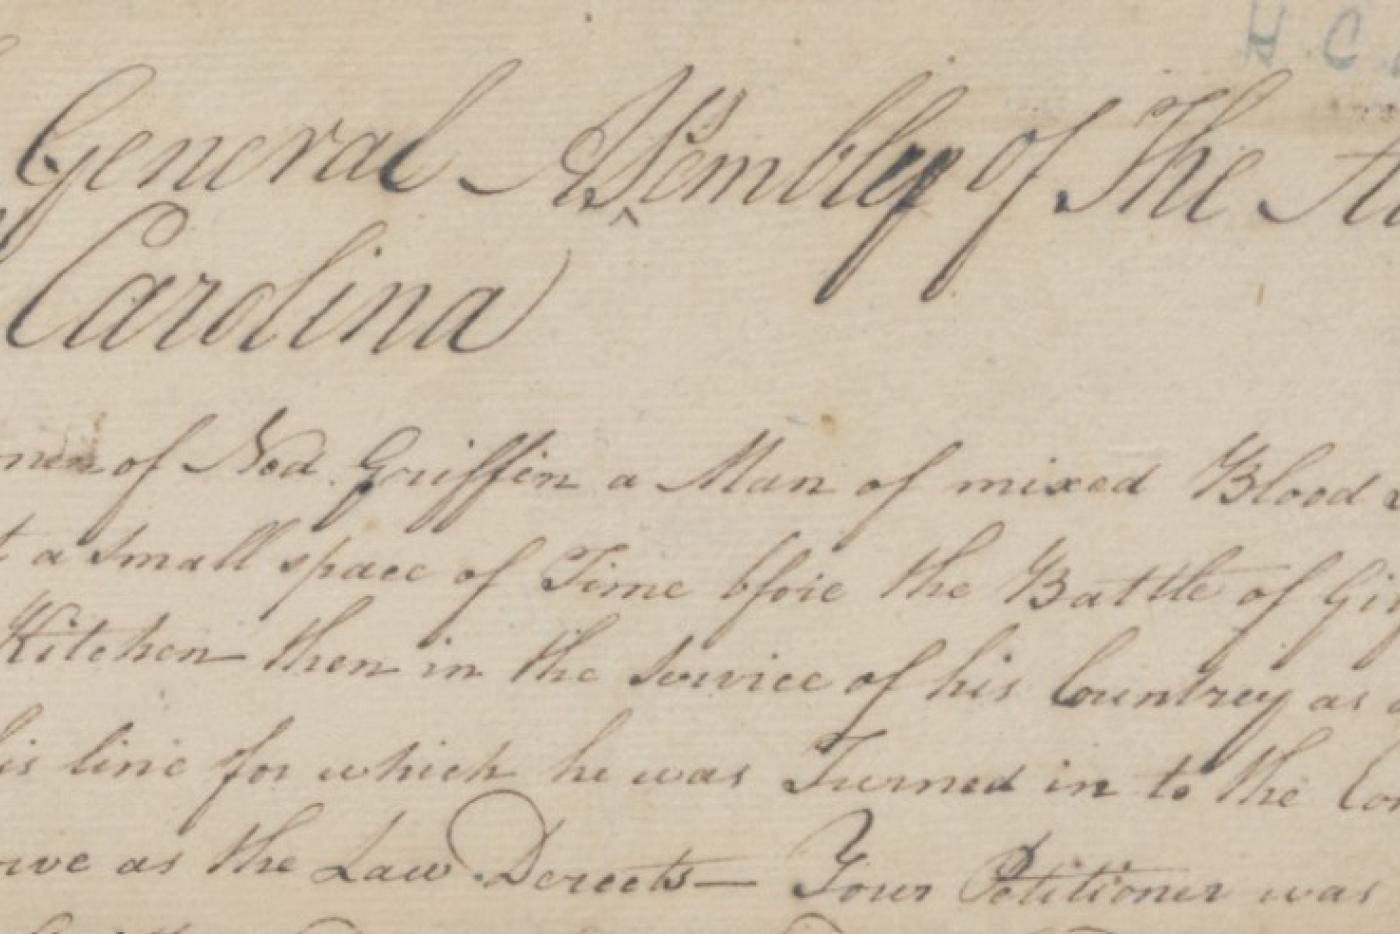 H. C.
General Assembly of The
Carolina
of Ned Griffin a Man of mixed Blood
a small space of Time bfore the Battle of
Kitchen then in the Service of his Countrey as
line for which he was Turned in to the
as the Law Dereets — Your Petitioner was